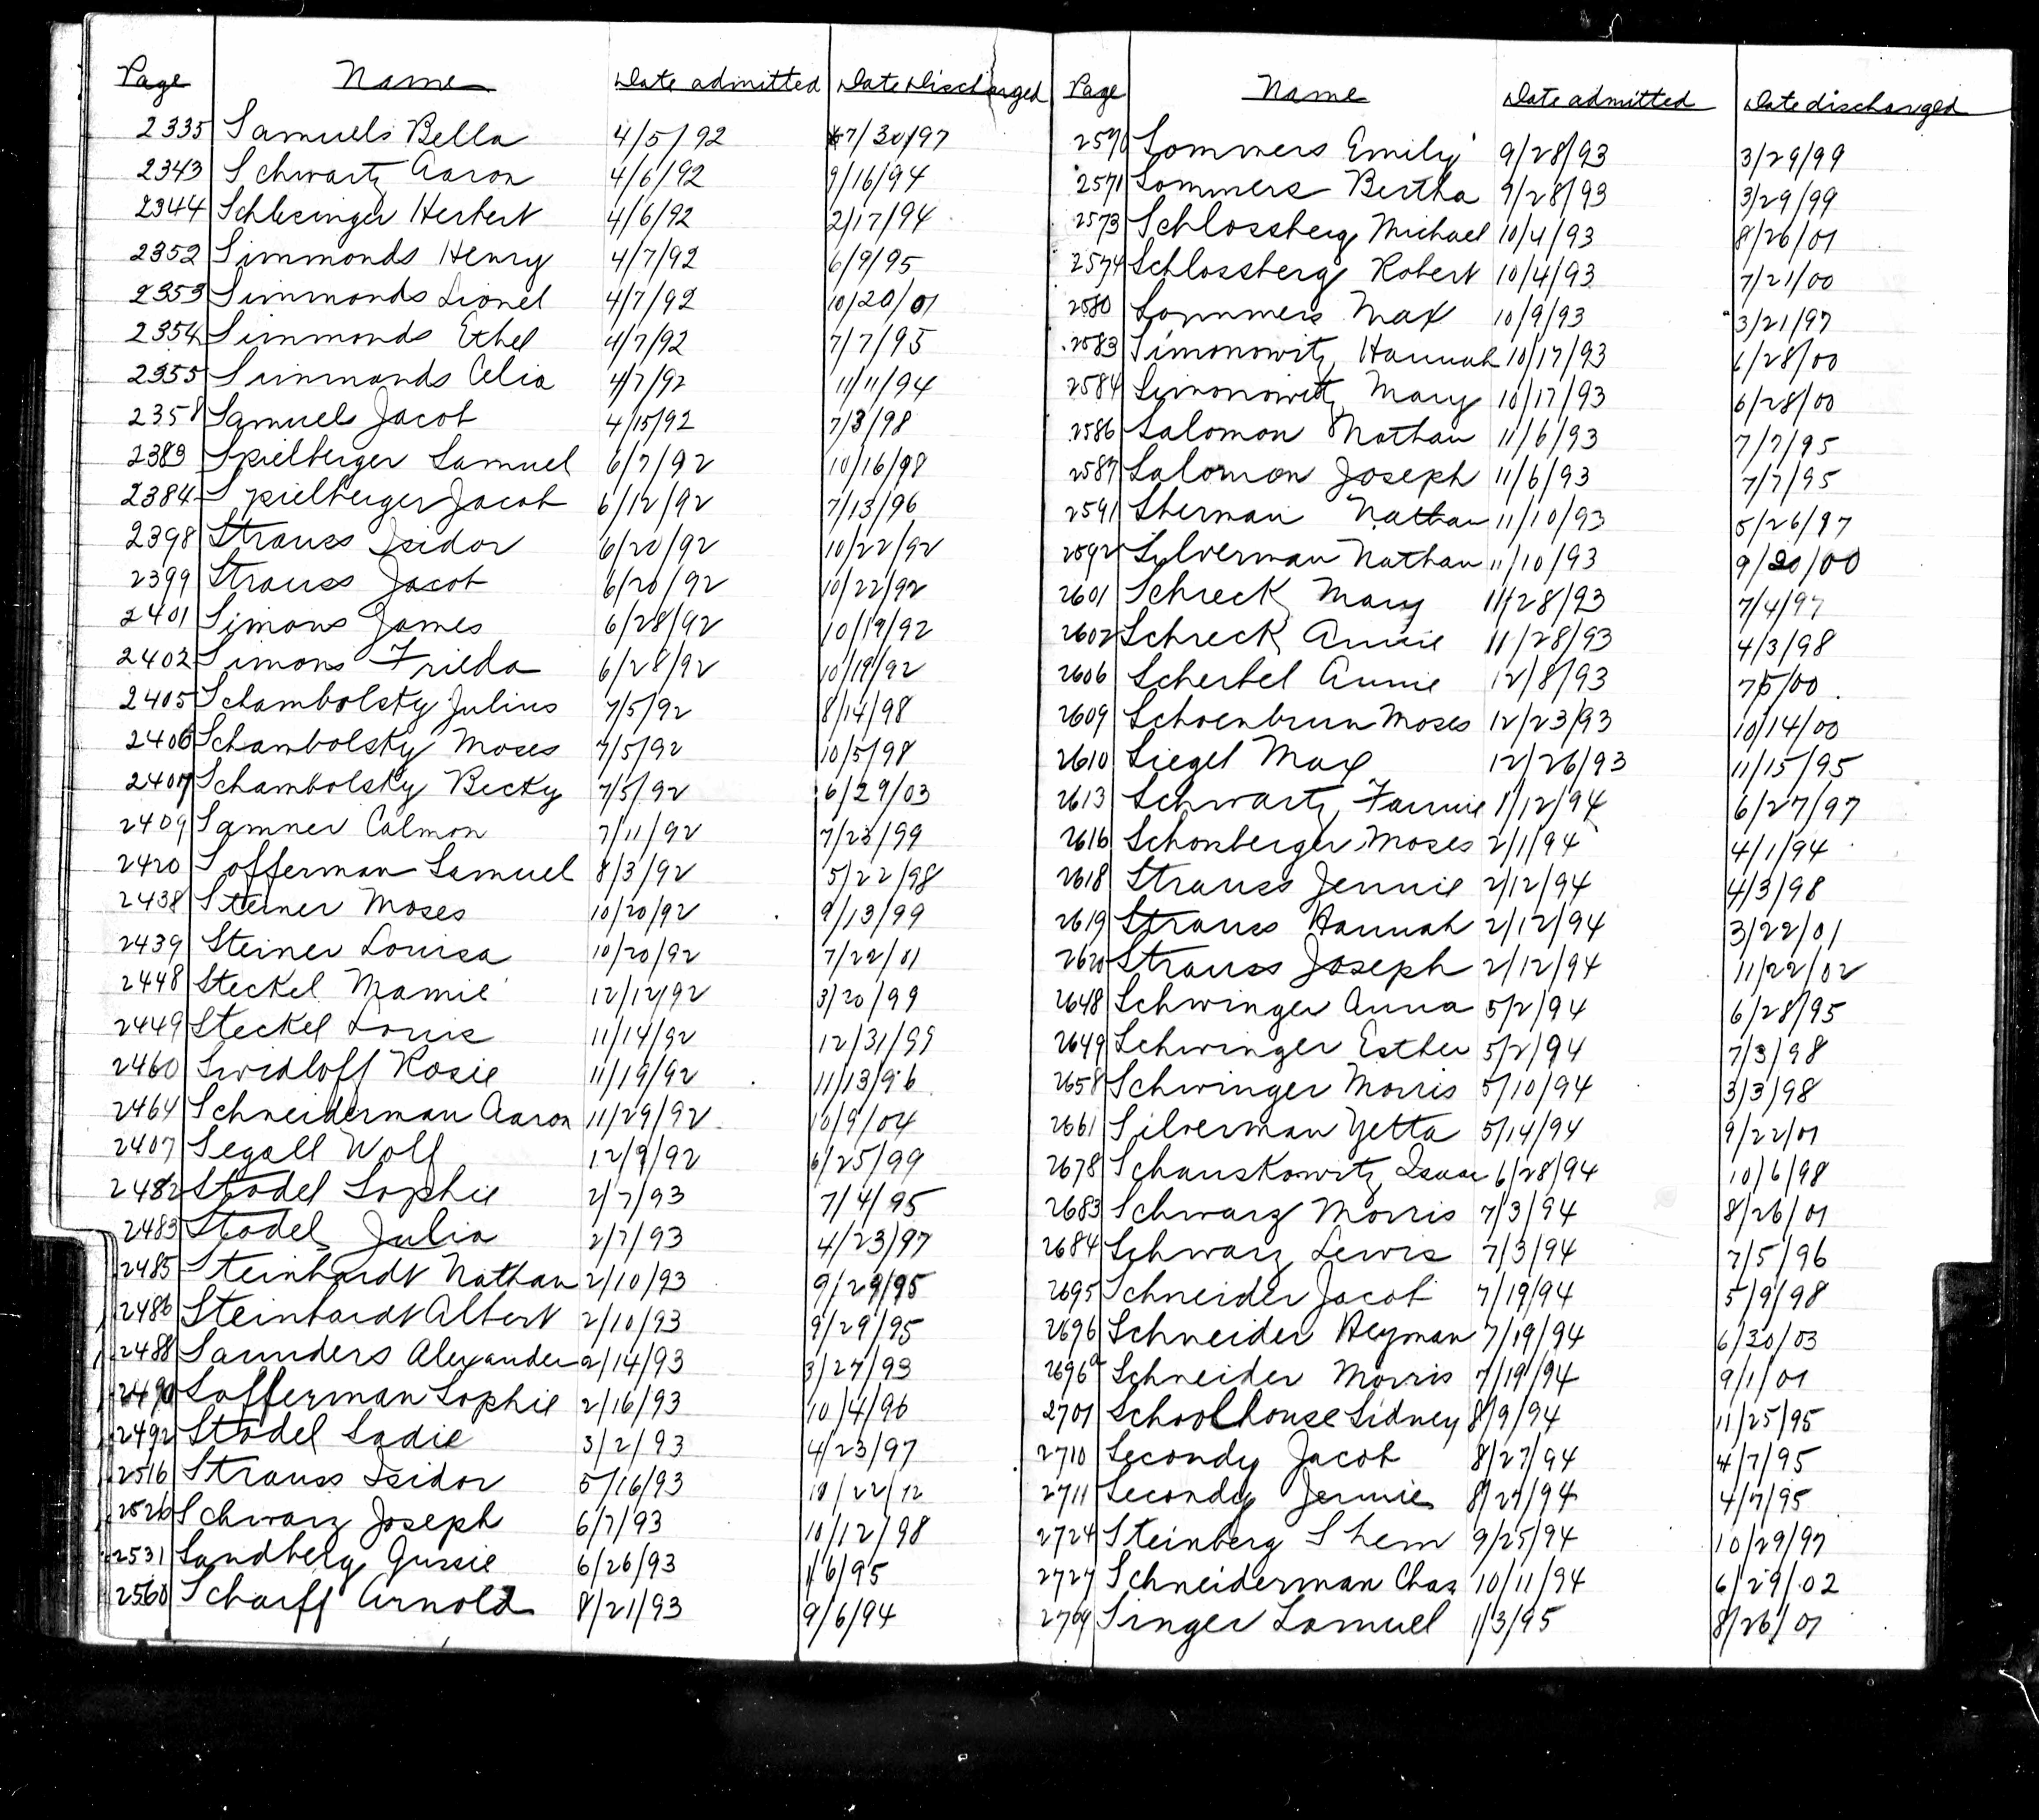 Page Name Date admitted Date Discharged
2335 Samuels Bella 4/5/92 7/30/97
2343 Schwartz Aaron 4/6/92 9/16/94
2344 Schlesinger Herbert 4/6/92 2/17/94
2352 Simmonds Henry 4/7/92 6/9/95
2353 Simmonds Lionel 4/7/92 10/20/01
2354 Simmonds Ethel 4/7/92 7/7/95
2355 Simmonds Celia 4/7/92 11/11/94
2358 Samuel Jacob 4/15/92 7/3/98
2383 Spielberger Samuel 6/7/92 10/16/98
2384 Spielberger Jacob 6/12/92 7/13/96
2398 Strauss Isidor 6/20/92 10/22/92
2399 Strauss Jacob 6/20/92 10/22/92
2401 Simons James 6/28/92 10/19/92
2402 Simons Frieda 6/28/92 10/19/92
2405 Schambolsky Julius 7/5/92 8/14/98
2406 Schambolsky Moses 7/5/92 10/5/98
2407 Schambolsky Becky 7/5/92 6/29/03
2409 Samner Calmon 7/11/92 7/23/99
2420 Sofferman Samuel 8/3/92 5/22/98
2438 Steiner Moses 10/20/92 9/13/99
2439 Steiner Louisa 10/20/92 7/22/01
2448 Steckel Mamie 12/12/92 3/20/99
2449 Steckel Louis 11/14/92 12/31/99
2460 Swidloff Rosie 11/19/92 11/13/96
2464 Schneiderman Aaron 11/29/92 10/9/04
2407 Segall Wolf 12/9/92 6/25/99
2482 Stodel Sophie 2/7/93 7/4/95
2483 Stodel Julia 2/7/93 4/23/97
2485 Steinhardt Nathan 2/10/93 9/29/95
2486 Steinhardt Albert 2/10/93 9/29/95
2488 Saunders Alexander 2/14/93 3/27/93
2490 Sofferman Sophie 2/16/93 10/4/96
2492 Stodel Sadie 3/2/93 4/23/97
2516 Strauss Isidor 5/16/93 10/22/12
2526 Schwarz Joseph 6/7/93 10/12/98
2531 Sandberg Gussie 6/26/93 1/6/95
2560 Scharff Arnold 8/21/93 9/6/94
Page Name Date admitted Date discharged
2570 Sommers Emily 9/28/93 3/29/99
2571 Sommers Bertha 9/28/93 3/29/99
2573 Schlossberg Michael 10/4/93 8/26/01
2574 Schlossberg Robert 10/4/93 7/21/00
2580 Sommers Max 10/9/93 3/21/97
2583 Simonowitz Hannah 10/17/93 6/28/00
2584 Simonowitz Mary 10/17/93 6/28/00
2586 Salomon Nathan 11/6/93 7/7/95
2587 Salomon Joseph 11/6/93 7/7/95
2591 Sherman Nathan 11/10/93 5/26/97
2592 Sylverman Nathan 11/10/93 9/20/00
2601 Schreck Mary 11/28/93 7/4/97
2602 Schreck Annie 11/28/93 4/3/98
2606 Scherbel Annie 12/8/93 7/5/00
2609 Schoenbrun Moses 12/23/93 10/14/00
2610 Siegel Max 12/26/93 11/15/95
2613 Schwartz Fannie 1/12/94 6/27/97
2616 Schonberger Moses 2/1/94 4/1/94
2618 Strauss Jennie 2/12/94 4/3/98
2619 Strauss Hannah 2/12/94 3/22/01
2620 Strauss Joseph 2/12/94 11/22/02
2648 Schwinger Anna 5/2/94 6/28/95
2649 Schwinger Esther 5/2/94 7/3/98
2658 Schwinger Morris 5/10/94 3/3/98
2661 Silverman Yetta 5/14/94 9/22/01
2678 Schauskowitz Isaac 6/28/94 10/6/98
2683 Schwarz Morris 7/3/94 8/26/01
2684 Schwarz Lewis 7/3/94 7/5/96
2695 Schneider Jacob 7/19/94 5/9/98
2696 Schneider Heyman 7/19/94 6/30/03
2696a Schneider Morris 7/19/94 9/1/01
2701 Schoolhouse Sidney 8/9/94 11/25/95
2710 Secondy Jacob 8/27/94 4/7/95
2711 Secondy Jennie 8/27/94 4/7/95
2724 Steinberg Shem 9/25/94 10/29/97
2727 Schneiderman Chas 10/11/94 6/29/02
2769 Singer Samuel 1/3/95 8/26/01